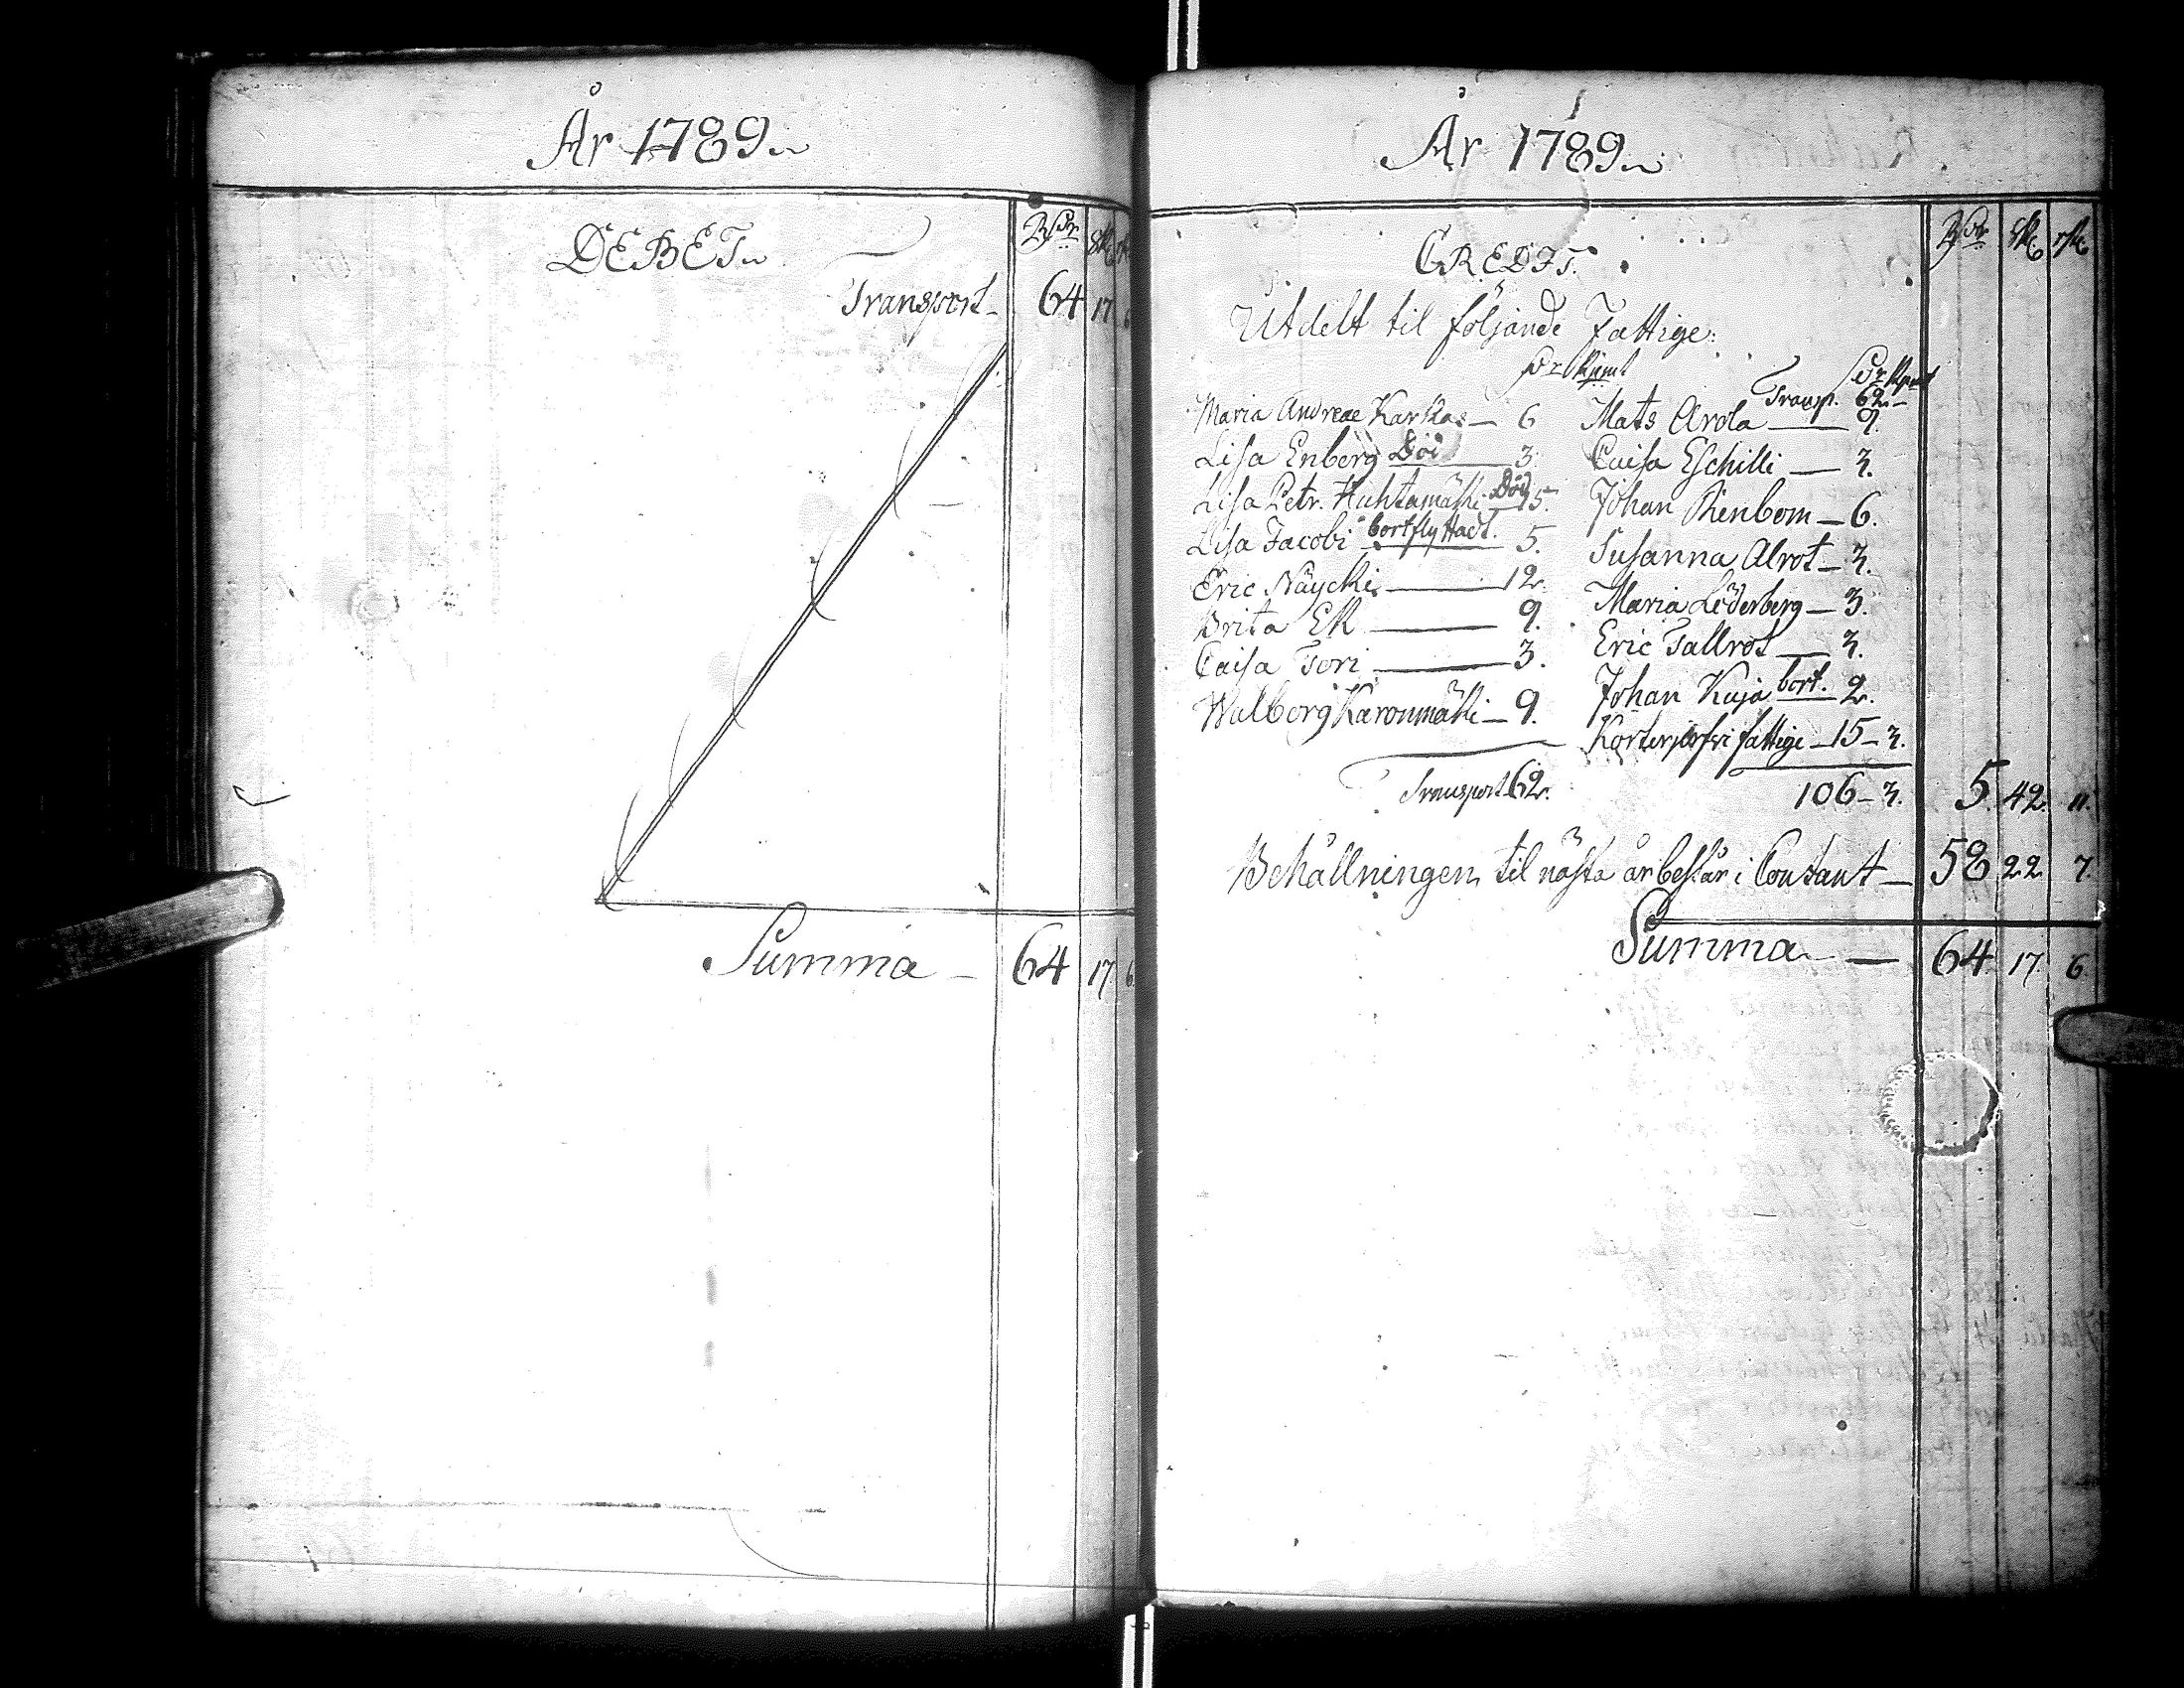 År 1789.
DEBET.
Rdr Sk. rst.
Transport 64 17
Summa 64 17 6
År 1789.
CREDIT.
Rdr Sk. rst.
Utdelt til följande Fattige:
Dr Kpmt
Dr Kpmt
Transp. 62.
Maria Andreae Karkas 6
Mats Arola 9.
Lisa Enberg Död 3.
Caisa Eschilli 3.
Lisa Petr. Huhtamäki Död 15.
Johan Renbom 6.
Lisa Jacobi bortflyttad. 5.
Susanna Alrot 3.
Eric Näycki 12.
Maria Löderberg 3.
Brita Ek 9.
Eric Tallrot 3.
Caisa Tori 3.
Johan Kuja bort. 2.
Walborg Karonmäki 9.
fattige 15-3.
Transport 62.
106-3. 5. 42. 11.
Behållningen til nästa år består i Contant 58 22 7.
Summa 64 17 6